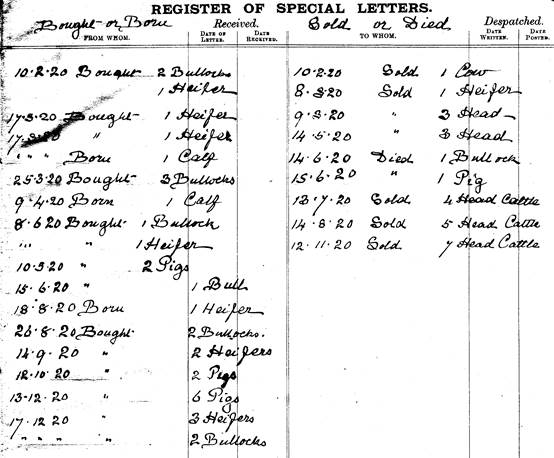 REGISTER OF SPECIAL LETTERS.
Bought or Born Received. Sold or Died Despatched.
FROM WHOM. DATE OF LETTER. DATE RECEIVED. TO WHOM. DATE WRITTEN. DATE POSTED.
10.2.20 Bought 2 Bullocks 10.2.20 Sold 1 Cow
1 Heifer 8.3.20 Sold 1 Heifer
17.3.20 Bought 1 Heifer 9.3.20 " 3 Head
17.3.20 " 1 Heifer 14.5.20 " 3 Head
" " " Born 1 Calf 14.6.20 Died 1 Bullock
25.3.20 Bought 3 Bullocks 15.6.20 " 1 Pig
9.4.20 Born 1 Calf 13.7.20 Sold 4 Head Cattle
8.6.20 Bought 1 Bullock 14.8.20 Sold 5 Head Cattle
" " " " 1 Heifer 12.11.20 Sold 7 Head Cattle
10.5.20 " 2 Pigs
15.6.20 " 1 Bull
18.8.20 Born 1 Heifer
26.8.20 Bought 2 Bullocks.
14.9.20 " 2 Heifers
12.10.20 " 2 Pigs
13.12.20 " 6 Pigs
17.12.20 " 3 Heifers
" " " " 2 Bullocks